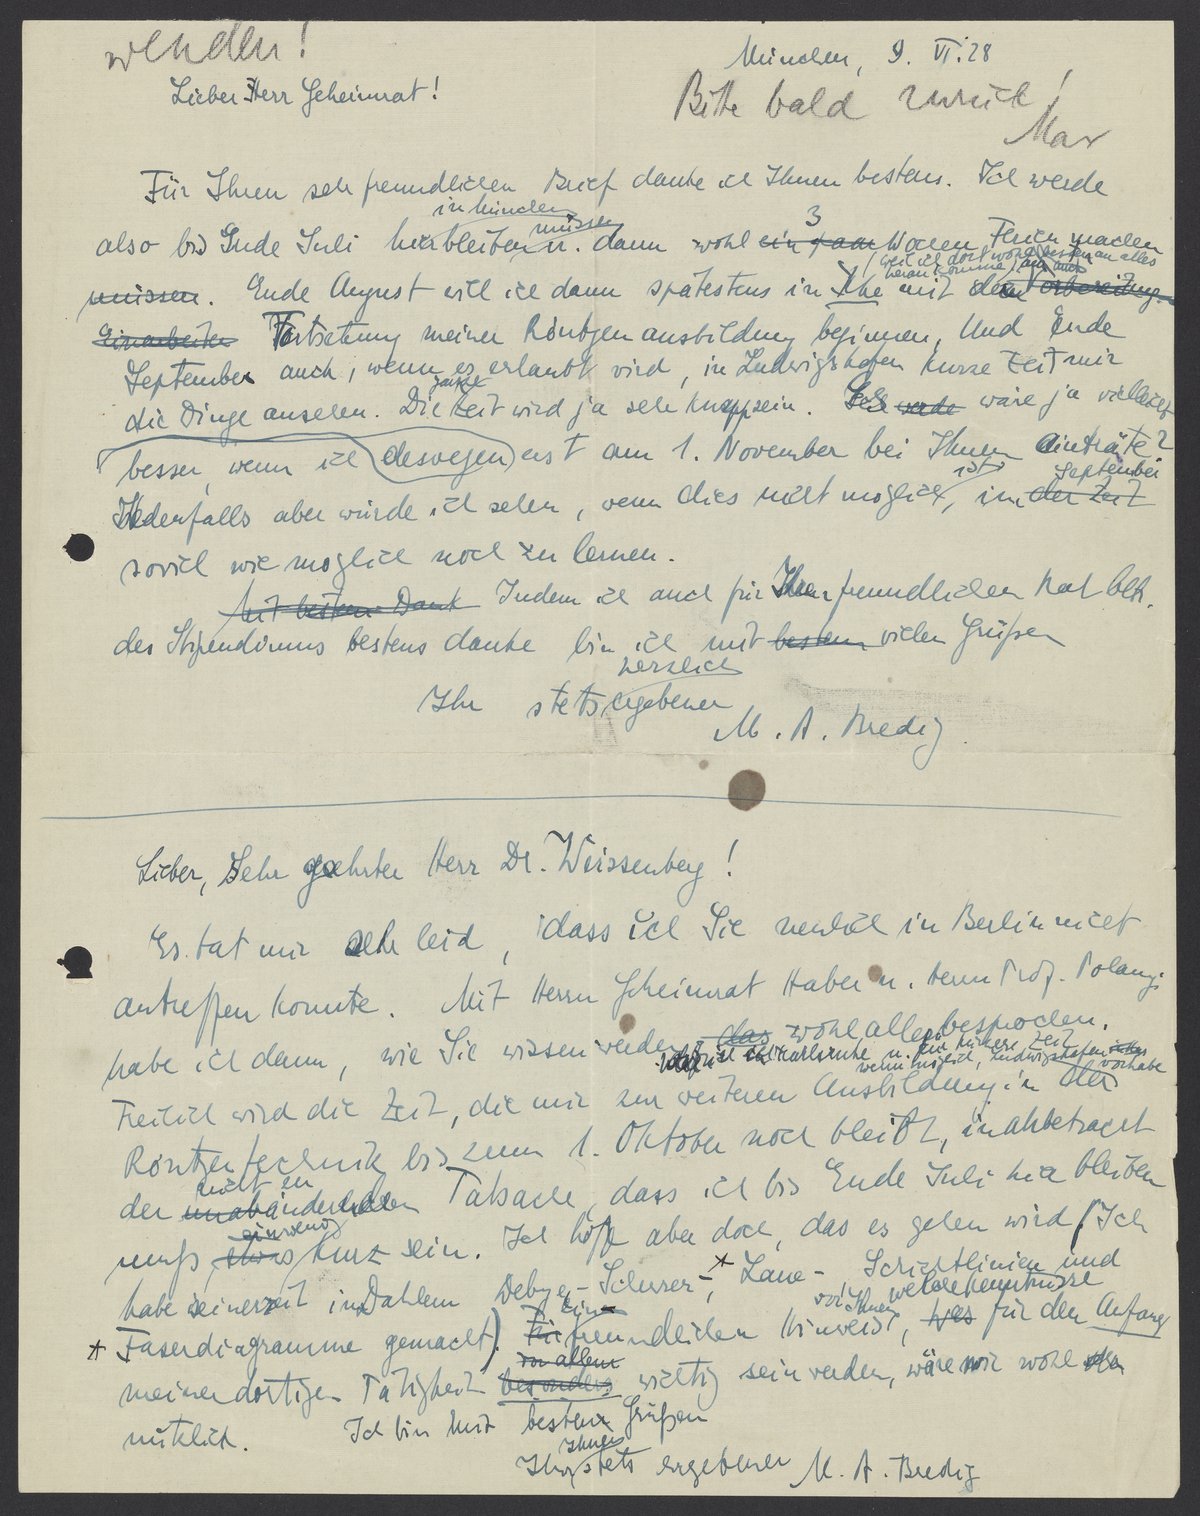 wenden!
München, 9. VI. 28
Lieber Herr Geheimrat!
Bitte bald zurück!
Max
Für Ihren sehr freundlichen Brief danke ich Ihnen bestens. Ich werde
in München
müssen
3
also bis Ende Juli hierbleiben u. dann wohl ein paar Wochen Ferien machen
(weil ich dort wohl besten an alles
herankomme)
müssen. Ende August will ich dann spätestens in Khe mit der
Einarbeiten Fortsetzung meiner Röntgenausbildung beginnen, Und Ende
September auch, wenn es erlaubt wird, in Ludwigshafen kurze Zeit mir
ganze
die Dinge ansehen. Die Zeit wird ja sehr knapp sein. Es werde wäre ja vielleicht
besser, wenn ich deswegen erst am 1. November bei Ihnen einträte?
ist
September
Jedenfalls aber würde ich sehen, wenn dies nicht möglich, im der Zeit
soviel wie möglich noch zu lernen.
Mit bestem Dank Indem ich auch für Ihren freundlichen Rat betr.
des Stipendiums bestens danke bin ich mit besten vielen Grüßen
herzlich
Ihr stets ergebener
M. A. Bredig
Lieber, Sehr geehrter Herr Dr. Weissenberg!
Es tat mir sehr leid, dass ich Sie neulich in Berlin nicht
antreffen konnte. Mit Herrn Geheimrat Haber u. Herrn Prof. Polanyi
habe ich dann, wie Sie wissen werden, das wohl alles besprochen.
Karlsruhe u. für kürzere Zeit
wenn möglich, Ludwigshafen vorhabe
Freilich wird die Zeit, die mir zur weiteren Ausbildung in der
Röntgentechnik bis zum 1. Oktober noch bleibt, in Anbetracht
nicht zu
der unabänderlichen Tatsache, dass ich bis Ende Juli hier bleiben
ein wenig
muß, etwas kurz sein. Ich hoffe aber doch, das es gehen wird (Ich
habe seinerzeit in Dahlem Debye-Scherrer-, Laue- Schichtlinien und
Einen
von Ihnen
welche Kenntnisse
Faserdiagramme gemacht). freundlichen Hinweis, was für den Anfang
vor allem
meiner dortigen Tätigkeit besonders wichtig sein werden, wäre mir wohl
nützlich. Ich bin mit besten Grüßen
Ihnen
Ihr stets ergebener M. A. Bredig